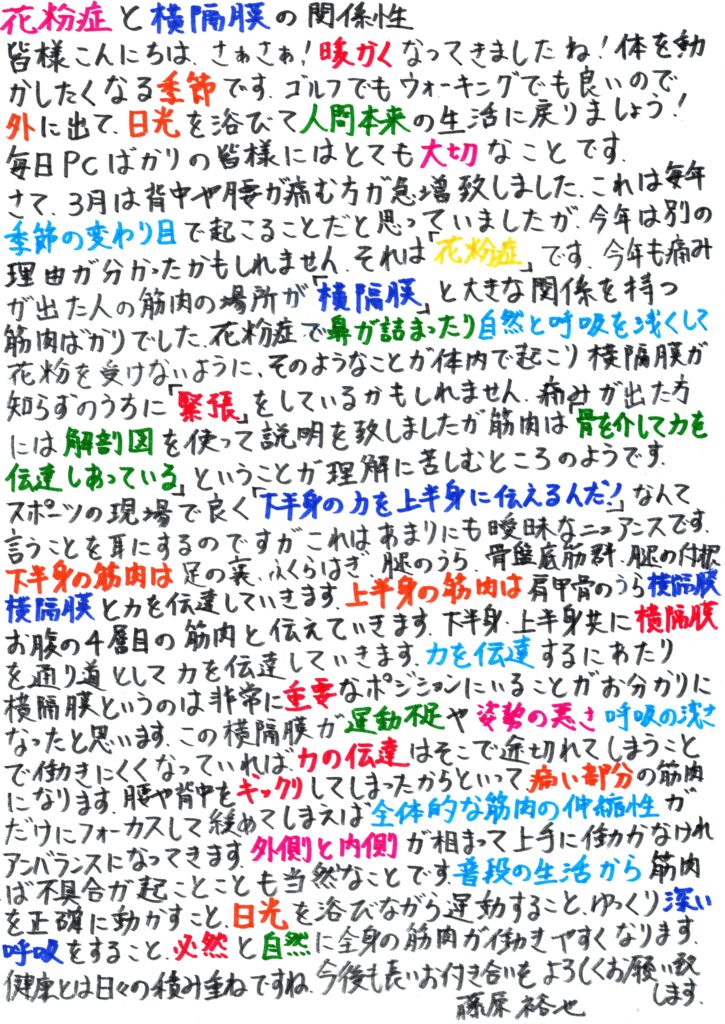 花粉症と横隔膜の関係性
皆様こんにちは、さぁさぁ!暖かくなってきましたね!体を動
かしたくなる季節です。ゴルフでもウォーキングでも良いので
外に出て、日光を浴びて人間本来の生活に戻りましょう!
毎日PCばかりの皆様にはとても大切なことです。
さて、3月は背中や腰が痛む方が急増致しました。これは毎年
季節の変わり目で起こることだと思っていましたが、今年は別の
理由が分かったかもしれません。それは「花粉症」です。今年も痛み
が出た人の筋肉の場所が「横隔膜」と大きな関係を持つ
筋肉ばかりでした。花粉症で鼻が詰まったり自然と呼吸を浅くして
花粉を受けないように、そのようなことが体内で起こり横隔膜が
知らずのうちに「緊張」をしているかもしれません。痛みが出た方
には解剖図を使って説明を致しましたが筋肉は「骨を介して力を
伝達しあっている」ということが理解に苦しむところのようです。
スポーツの現場で良く「下半身の力を上半身に伝えるんだ!」なんて
言うことを耳にするのですがこれはあまりにも曖昧なニュアンスです。
下半身の筋肉は足の裏、ふくらはぎ、腿のうら、骨盤底筋群、腿の付根
横隔膜と力を伝達していきます。上半身の筋肉は肩甲骨のうら横隔膜
お腹の4層目の筋肉と伝えていきます。下半身、上半身共に横隔膜
を通り道として力を伝達していきます。力を伝達するにあたり
横隔膜というのは非常に重要なポジションにいることがお分かりに
なったと思います。この横隔膜が運動不足や姿勢の悪さ呼吸の浅さ
で働きにくくなっていれば、力の伝達はそこで途切れてしまうこと
になります。腰や背中をギックリしてしまったからといって痛い部分の筋肉
だけにフォーカスして緩めてしまえば全体的な筋肉の伸縮性が
アンバランスになってきます。外側と内側が相まって上手に働かなけれ
ば不具合が起ことことも当然なことです。普段の生活から筋肉
を正確に動かすこと、日光を浴びながら運動すること、ゆっくり深い
呼吸をすること、必然と自然に全身の筋肉が働きやすくなります。
健康とは日々の積み重ねですね。今後も長いお付き合いをよろしくお願い致
します。
藤原裕也